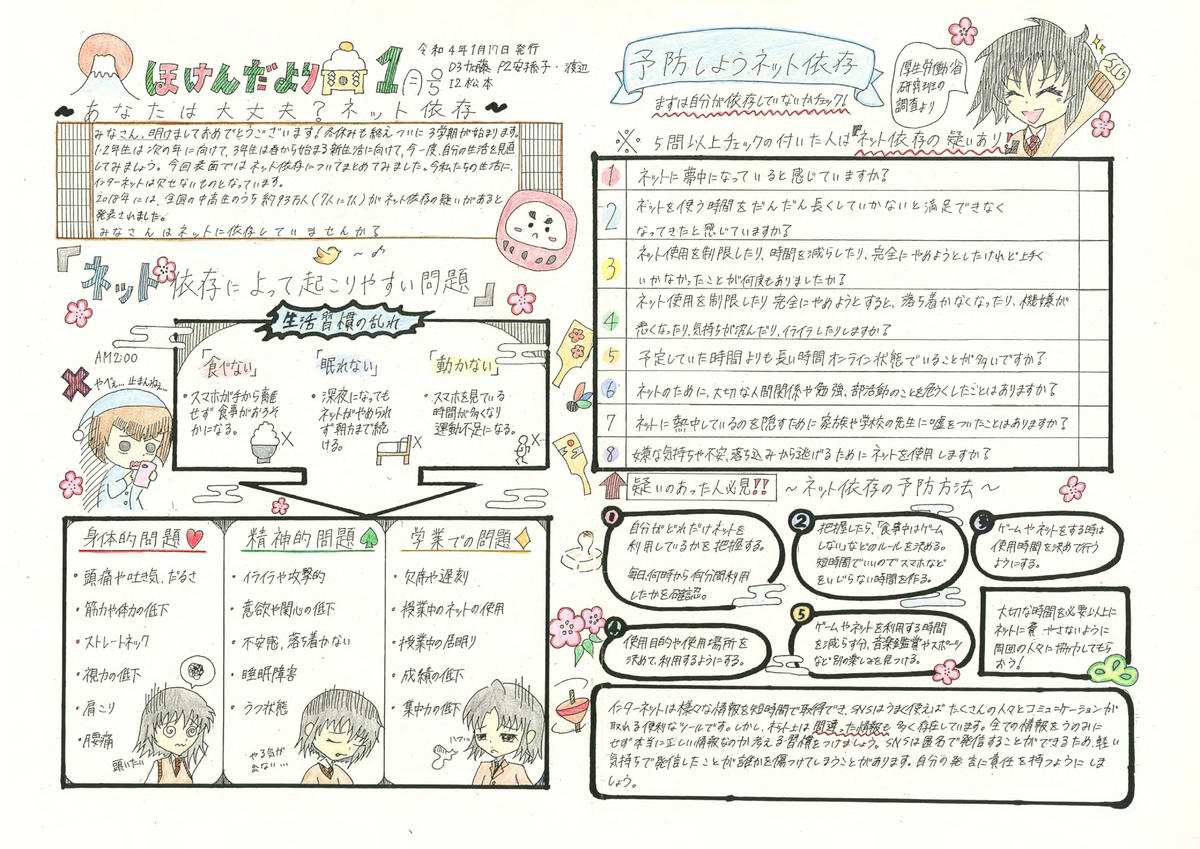 ほけんだより 1月号
令和4年1月17日発行
D3加藤 P2安孫子・渡辺
I2松本
~あなたは大丈夫?ネット依存~
みなさん、明けましておめでとうございます!冬休みも終えついに3学期が始まります。
1・2年生は次の年に向けて、3年生は春から始まる新生活に向けて、今一度、自分の生活を見直
してみましょう。今回表面ではネット依存についてまとめてみました。今私たちの生活に、
インターネットは欠せないものとなっています。
2018年には、全国の中高生のうち約93万人(7人に1人)がネット依存の疑いがあると
発表されました。
みなさんはネットに依存していませんか?
~♪
『ネット依存によって起こりやすい問題』
生活習慣の乱れ
AM2:00
やべぇ…止まんねぇ…
「食べない」
・スマホが手から離せ
せず食事がおろそ
かになる。
「眠れない」
・深夜になっても
ネットがやめられ
ず朝方まで続
ける。
「動かない」
・スマホを見ている
時間が多くなり
運動不足になる。
身体的問題
・頭痛や吐き気、だるさ
・筋力や体力の低下
・ストレートネック
・視力の低下
・肩こり
・腰痛
頭いたい
精神的問題
・イライラや攻撃的
・意欲や関心の低下
・不安感、落ち着かない
・睡眠障害
・うつ状態
やる気が
出ない…
学業での問題
・欠席や遅刻
・授業中のネットの使用
・授業中の居眠り
・成績の低下
・集中力の低下
ハァ…
予防しようネット依存
まずは自分が依存していないかチェック!
厚生労働省
研究班の
調査より
※ 5問以上チェックの付いた人はネット依存の疑いあり!!
1 ネットに夢中になっていると感じていますか?
2 ネットを使う時間をだんだん長くしていかないと満足できなく
なってきたと感じていますか?
3 ネット使用を制限したり、時間を減らしたり、完全にやめようとしたけれど上手く
いかなかったことが何度もありましたか?
4 ネット使用を制限したり完全にやめようとすると、落ち着かなくなったり、機嫌が
悪くなったり、気持ちが沈んだり、イライラしたりしますか?
5 予定していた時間よりも長い時間オンライン状態でいることが多いですか?
6 ネットのために、大切な人間関係や勉強、部活動のことを危うくしたことはありますか?
7 ネットに熱中しているのを隠すために家族や学校の先生に嘘をついたことはありますか?
8 嫌な気持ちや不安、落ち込みから逃げるためにネットを使用しますか?
疑いのあった人必見!! ~ネット依存の予防方法~
1 自分がどれだけネットを
利用しているかを把握する。
毎日何時から何分間利用
したかを確認。
2 把握したら、「食事中はゲーム
しない」などのルールを決める。
短時間でいいのでスマホなど
をいじらない時間を作る。
3 ゲームやネットをする時は
使用時間を決めて行う
ようにする。
4 使用目的や使用場所を
決めて利用するようにする。
5 ゲームやネットを利用する時間
を減らす分、音楽鑑賞やスポーツ
など別の楽しみを見つける。
大切な時間を必要以上に
ネットに費やさないように
周囲の人々に協力してもら
おう!
インターネットは様々な情報を短時間で取得でき、SNSはうまく使えばたくさんの人々とコミュニケーションが
取れる便利なツールです。しかし、ネット上は間違った情報も多く存在しています。全ての情報をうのみに
せず本当に正しい情報なのか考える習慣をつけましょう。SNSは匿名で発信することができるため、軽い
気持ちで発信したことが誰かを傷つけてしまうことがあります。自分の発言に責任を持つようにしま
しょう。